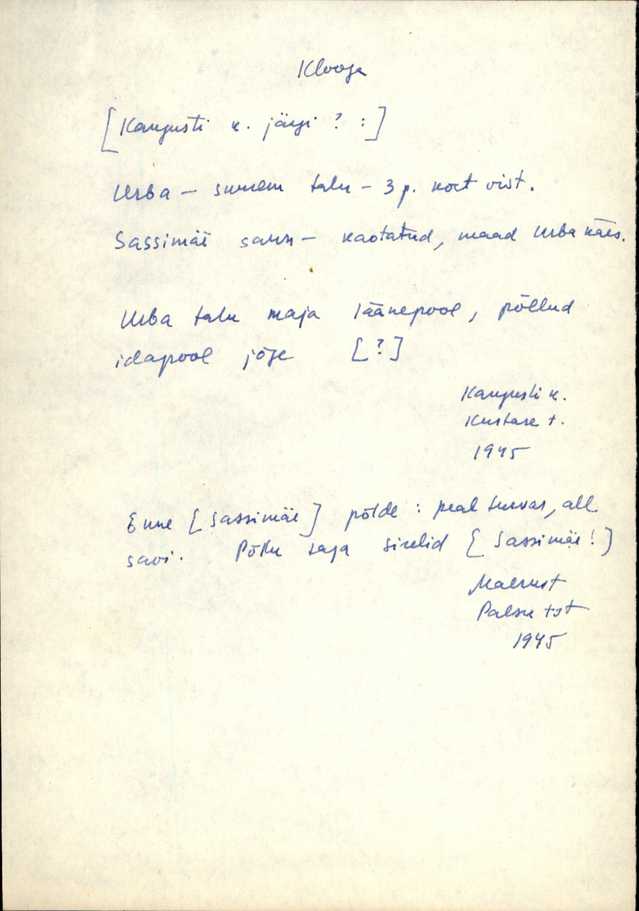 Klooga
[Kangusti k. järgi ? :]
Urba – suurem talu – 3 p. koct vist.
Sassimäe saun – kaotatud, maad Urba käes.
Urba talu maja läänepool, põllud
idapool jõge [?]
Kangusti k.
Kustase t.
1945
Enne [Sassimäe] põlde : peal turvas, all
savi. Põllu taga sirelid [Sassimäe!]
1945